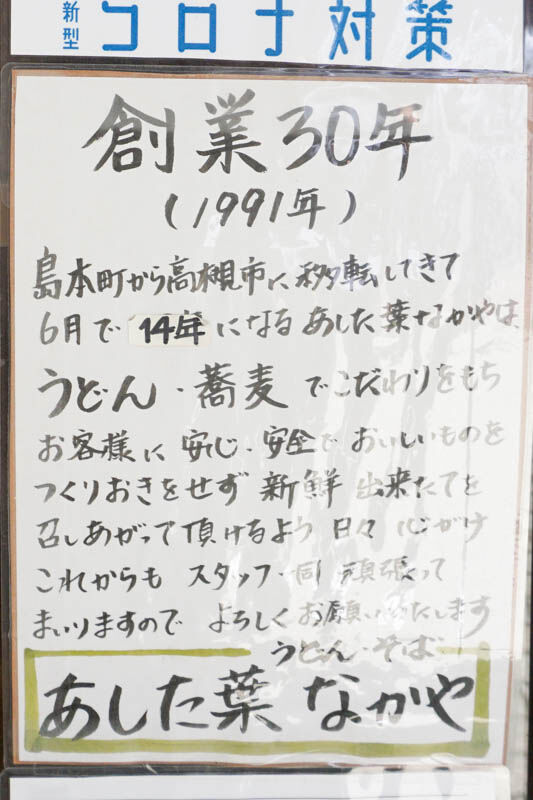 新型
コロナ対策
創業30年
(1991年)
島本町から高槻市に移転してきて
6月で 14年 になる あした葉なかやは、
うどん・蕎麦 でこだわりをもち
お客様に 安心・安全で おいしいものを
つくりおきをせず 新鮮 出来たてを
召しあがって 頂けるよう 日々 心がけ
これからも スタッフ一同 頑張って
まいりますので よろしく お願いいたします
うどん・そば
あした葉 なかや